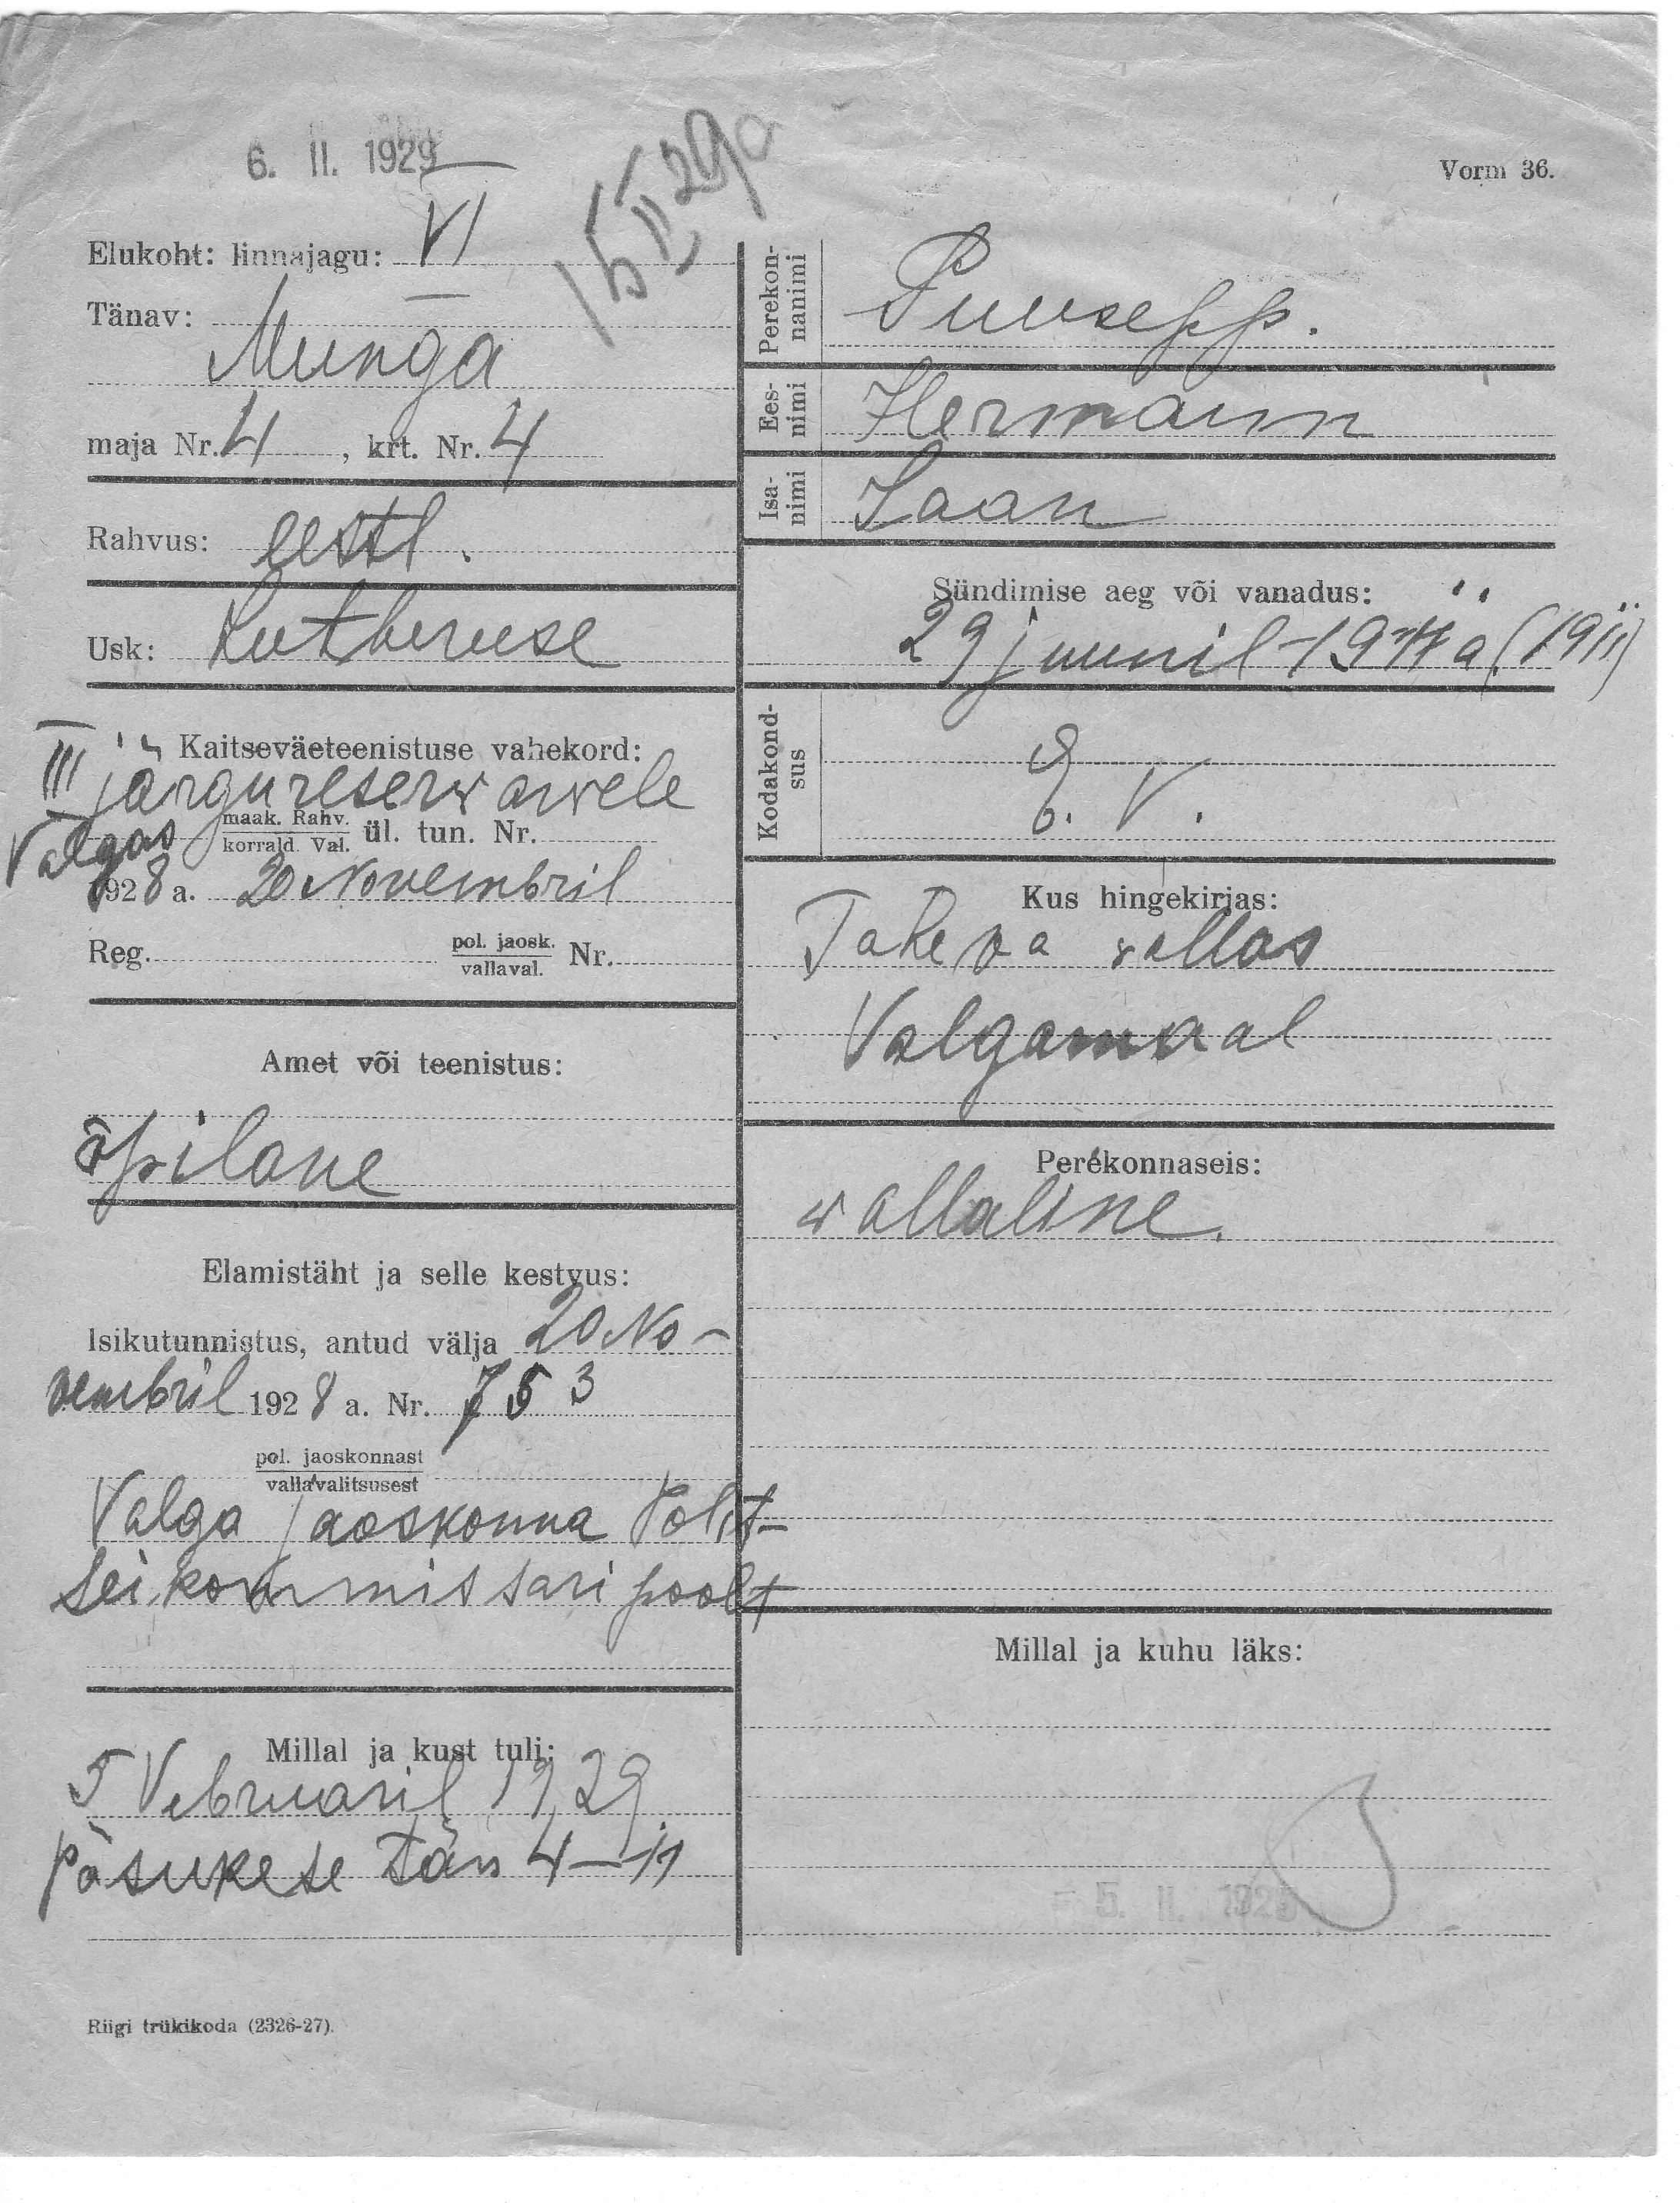 6. II. 1929
15 II 29 a
Vorm 36.
Elukoht: linnajagu: VI
Tänav:
Munga
maja Nr. 4, krt. Nr. 4
Rahvus: eestl.
Usk: Lutheruse
Kaitseväeteenistuse vahekord:
III järgu reserw arwele
Valgas maak. Rahv. korrald. Val. ül. tun. Nr.
1928 a. 20 Novembril
Reg. pol. jaosk. vallaval. Nr.
Amet või teenistus:
õpilane
Elamistäht ja selle kestvus:
Isikutunnistus, antud välja 20 No-
vembril 1928 a. Nr. 753
pol. jaoskonnast
vallavalitsusest
Valga jaoskonna Polit-
sei kommissari poolt
Millal ja kust tuli:
5 Vebruaril 1929.
Pääsukese tän 4–11
Riigi trükikoda (2326-27).
Perekon-
nanimi
Puusepp.
Ees-
nimi
Hermann
Isa-
nimi
Jaan
Sündimise aeg või vanadus:
29 juunil 1911 a (1911)
Kodakond-
sus
E. V.
Kus hingekirjas:
Taheva wallas
Valgamaal
Perekonnaseis:
wallaline.
Millal ja kuhu läks:
5. II. 1929